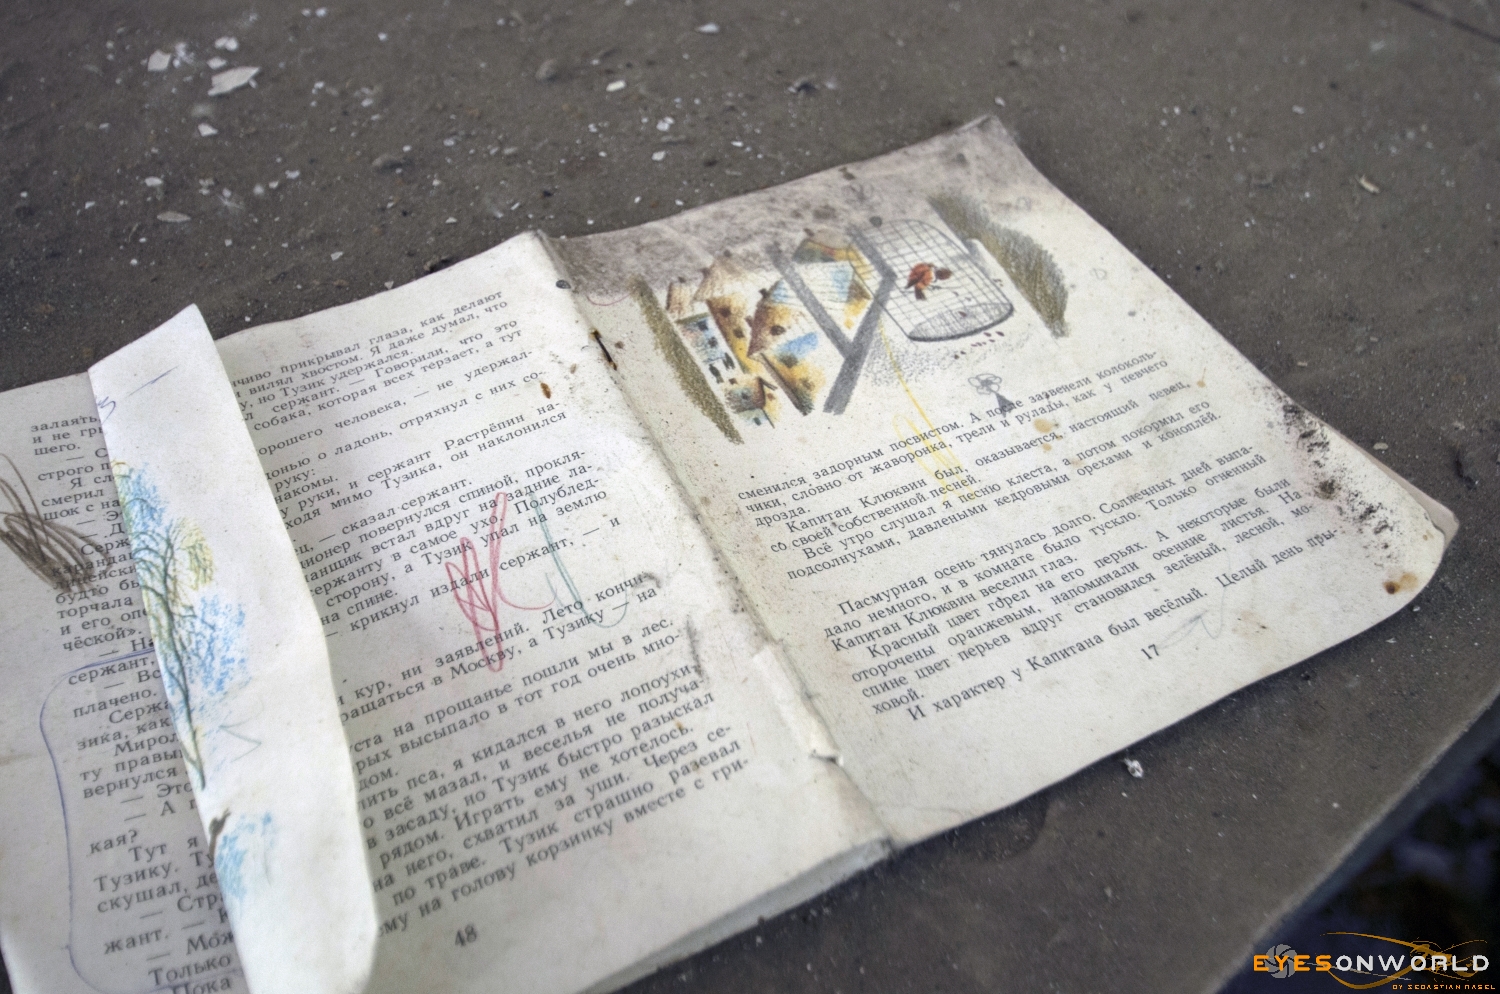 залаять
и не гр
шего.
— С
строго п
Я сл
смерил
шок с на
— Э
— Д
Серж
карандаш
будто бы
торчала
и его оп
ческой».
— На
сержант,
— Вс
плачено.
Сержа
зика, как
Мирол
ту правы
вернулся
— Это
— А п
кая?
Тут я
Тузику. Ту
скушал, де
— Стр
жант. — К
— Мож
Только
Пока
чиво прикрывал глаза, как делают
вилял хвостом. Я даже думал, что
у, но Тузик удержался.
сержант. — Говорили, что это
собака, которая всех терзает, а тут
орошего человека, — не удержал-
донью о ладонь, отряхнул с них со-
руки, и сержант Растрёпин на-
руку:
накомы.
ходя мимо Тузика, он наклонился
ец, — сказал сержант.
ционер повернулся спиной, прокля-
анщик встал вдруг на задние ла-
ержанту в самое ухо. Полублед-
сторону, а Тузик упал на землю
на спине.
— крикнул издали сержант, — и
и кур, ни заявлений. Лето кончи-
ращаться в Москву, а Тузику — на
уста на прощанье пошли мы в лес.
рых высыпало в тот год очень мно-
дом.
лить пса, я кидался в него лопоухи
о всё мазал, и веселья не получа-
в засаду, но Тузик быстро разыскал
рядом. Играть ему не хотелось.
на него, схватил за уши. Через се-
по траве. Тузик страшно разевал
ему на голову корзинку вместе с гри-
48
сменился задорным посвистом. А после зазвенели колоколь-
чики, словно от жаворонка, трели и рулады, как у певчего
дрозда.
Капитан Клюквин был, оказывается, настоящий певец,
со своей собственной песней.
Всё утро слушал я песню клеста, а потом покормил его
подсолнухами, давлеными кедровыми орехами и коноплёй.
Пасмурная осень тянулась долго. Солнечных дней выпа-
дало немного, и в комнате было тускло. Только огненный
Капитан Клюквин веселил глаз.
Красный цвет горел на его перьях. А некоторые были
оторочены оранжевым, напоминали осенние листья. На
спине цвет перьев вдруг становился зелёный, лесной, мо-
ховой.
И характер у Капитана был весёлый. Целый день пры-
17
EYESONWORLD
BY SEBASTIAN NASEL